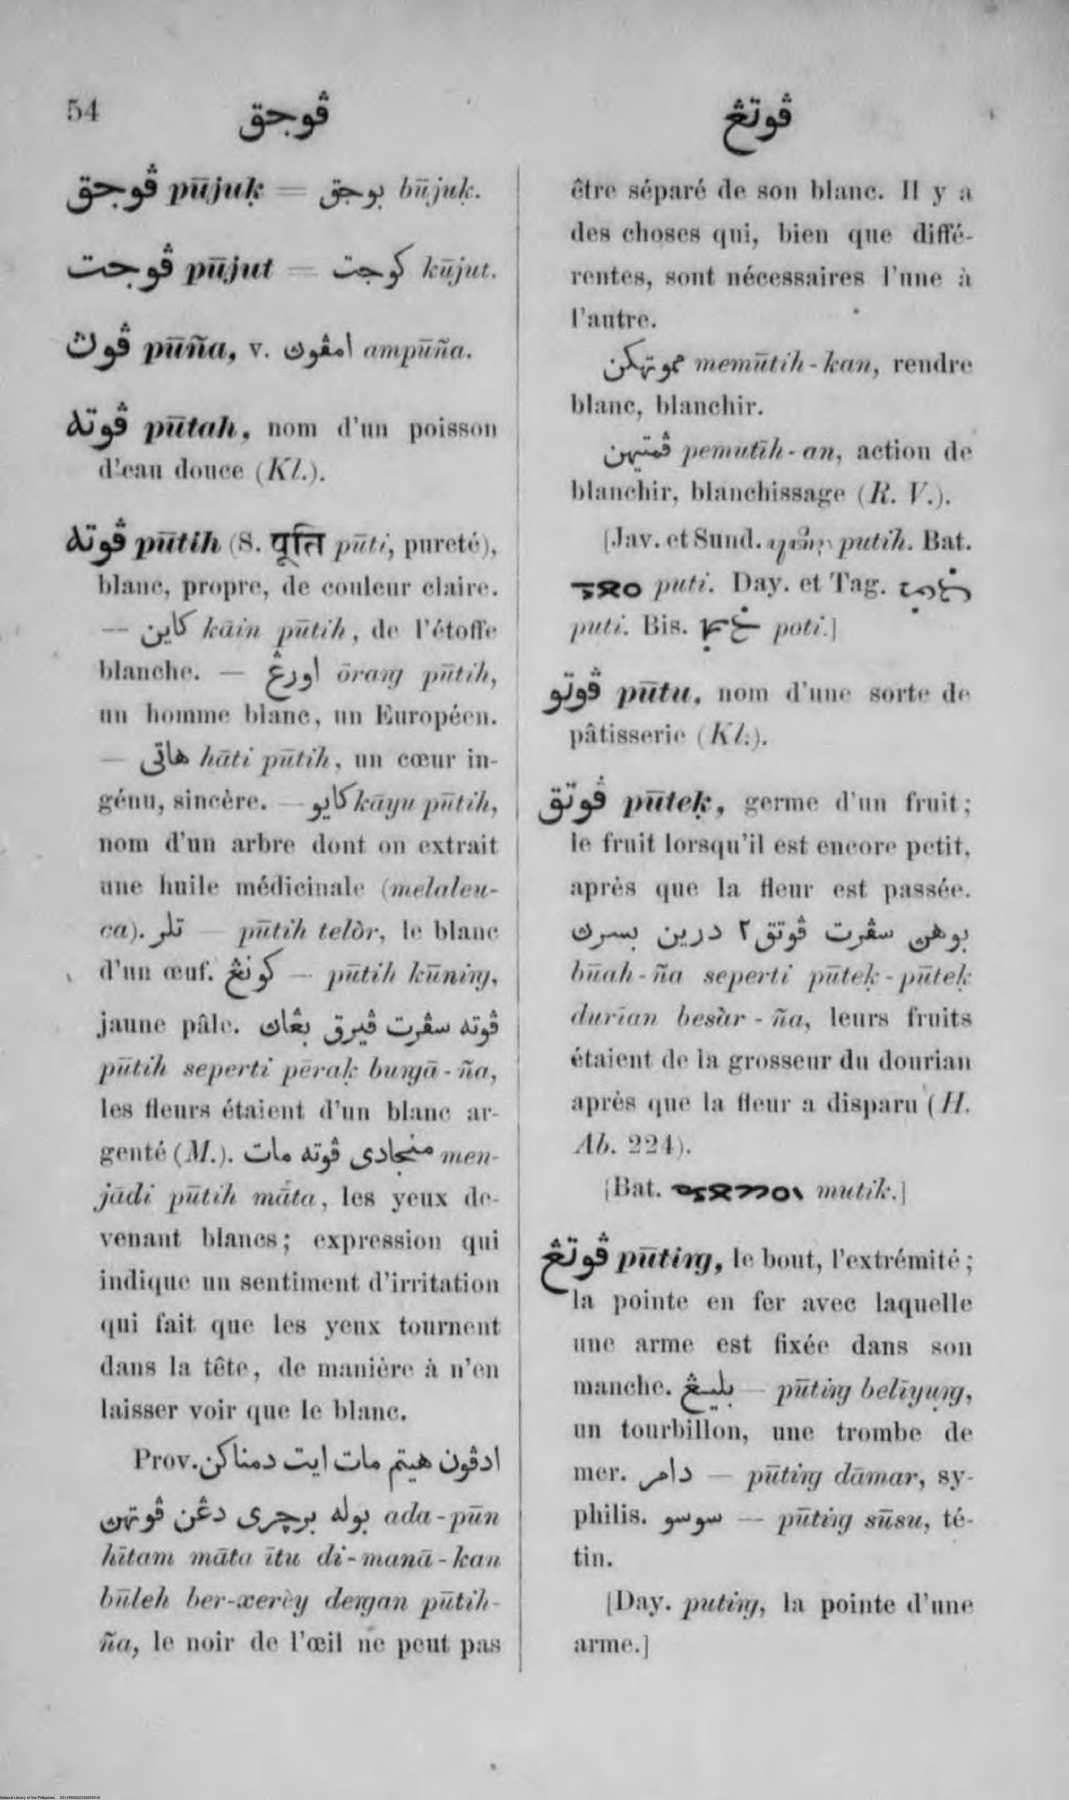 54 ڤوجق ڤوتڠ
ڤوجق pūjuḳ = بوجق būjuḳ.
ڤوجت pūjut = كوجت kūjut.
ڤوڽ pūña, v. امڤوڽ ampūña.
ڤوته pūtah, nom d'un poisson
d'eau douce (Kl.).
ڤوته pūtih (S. पूति pūti, pureté),
blanc, propre, de couleur claire.
— كاين kāin pūtih, de l'étoffe
blanche. — اورڠ ōraṅg pūtih,
un homme blanc, un Européen.
— هاتى hāti pūtih, un cœur in-
génu, sincère. — كايو kāyu pūtih,
nom d'un arbre dont on extrait
une huile médicinale (melaleu-
ca). تلر — pūtih telòr, le blanc
d'un œuf. كونڠ — pūtih kūniṅg,
jaune pâle. ڤوته سڤرت ڤيرق بڠاڽ
pūtih seperti pēraḳ buṅgā-ña,
les fleurs étaient d'un blanc ar-
genté (M.). منجادى ڤوته مات men-
jādi pūtih māta, les yeux de-
venant blancs; expression qui
indique un sentiment d'irritation
qui fait que les yeux tournent
dans la tête, de manière à n'en
laisser voir que le blanc.
Prov. ادڤون هيتم مات ايت دمناكن
بوله برچرى دڠن ڤوتهن ada-pūn
hītam māta ītu di-manā-kan
būleh ber-xerèy deṅgan pūtih-
ña, le noir de l'œil ne peut pas
être séparé de son blanc. Il y a
des choses qui, bien que diffé-
rentes, sont nécessaires l'une à
l'autre.
مموتهكن memūtih-kan, rendre
blanc, blanchir.
ڤمتيهن pemutīh-an, action de
blanchir, blanchissage (R. V.).
[Jav. et Sund. putih. Bat.
puti. Day. et Tag.
puti. Bis. poti.]
ڤوتو pūtu, nom d'une sorte de
pâtisserie (Kl.).
ڤوتق pūteḳ, germe d'un fruit;
le fruit lorsqu'il est encore petit,
après que la fleur est passée.
بوهن سڤرت ڤوتق٢ درين بسرڽ
būah-ña seperti pūteḳ-pūteḳ
durīan besàr-ña, leurs fruits
étaient de la grosseur du dourian
après que la fleur a disparu (H.
Ab. 224).
[Bat. mutik.]
ڤوتڠ pūtiṅg, le bout, l'extrémité;
la pointe en fer avec laquelle
une arme est fixée dans son
manche. بليڠ — pūtiṅg belīyuṅg,
un tourbillon, une trombe de
mer. دامر — pūtiṅg dāmar, sy-
philis. سوسو — pūtiṅg sūsu, té-
tin.
[Day. putiṅg, la pointe d'une
arme.]